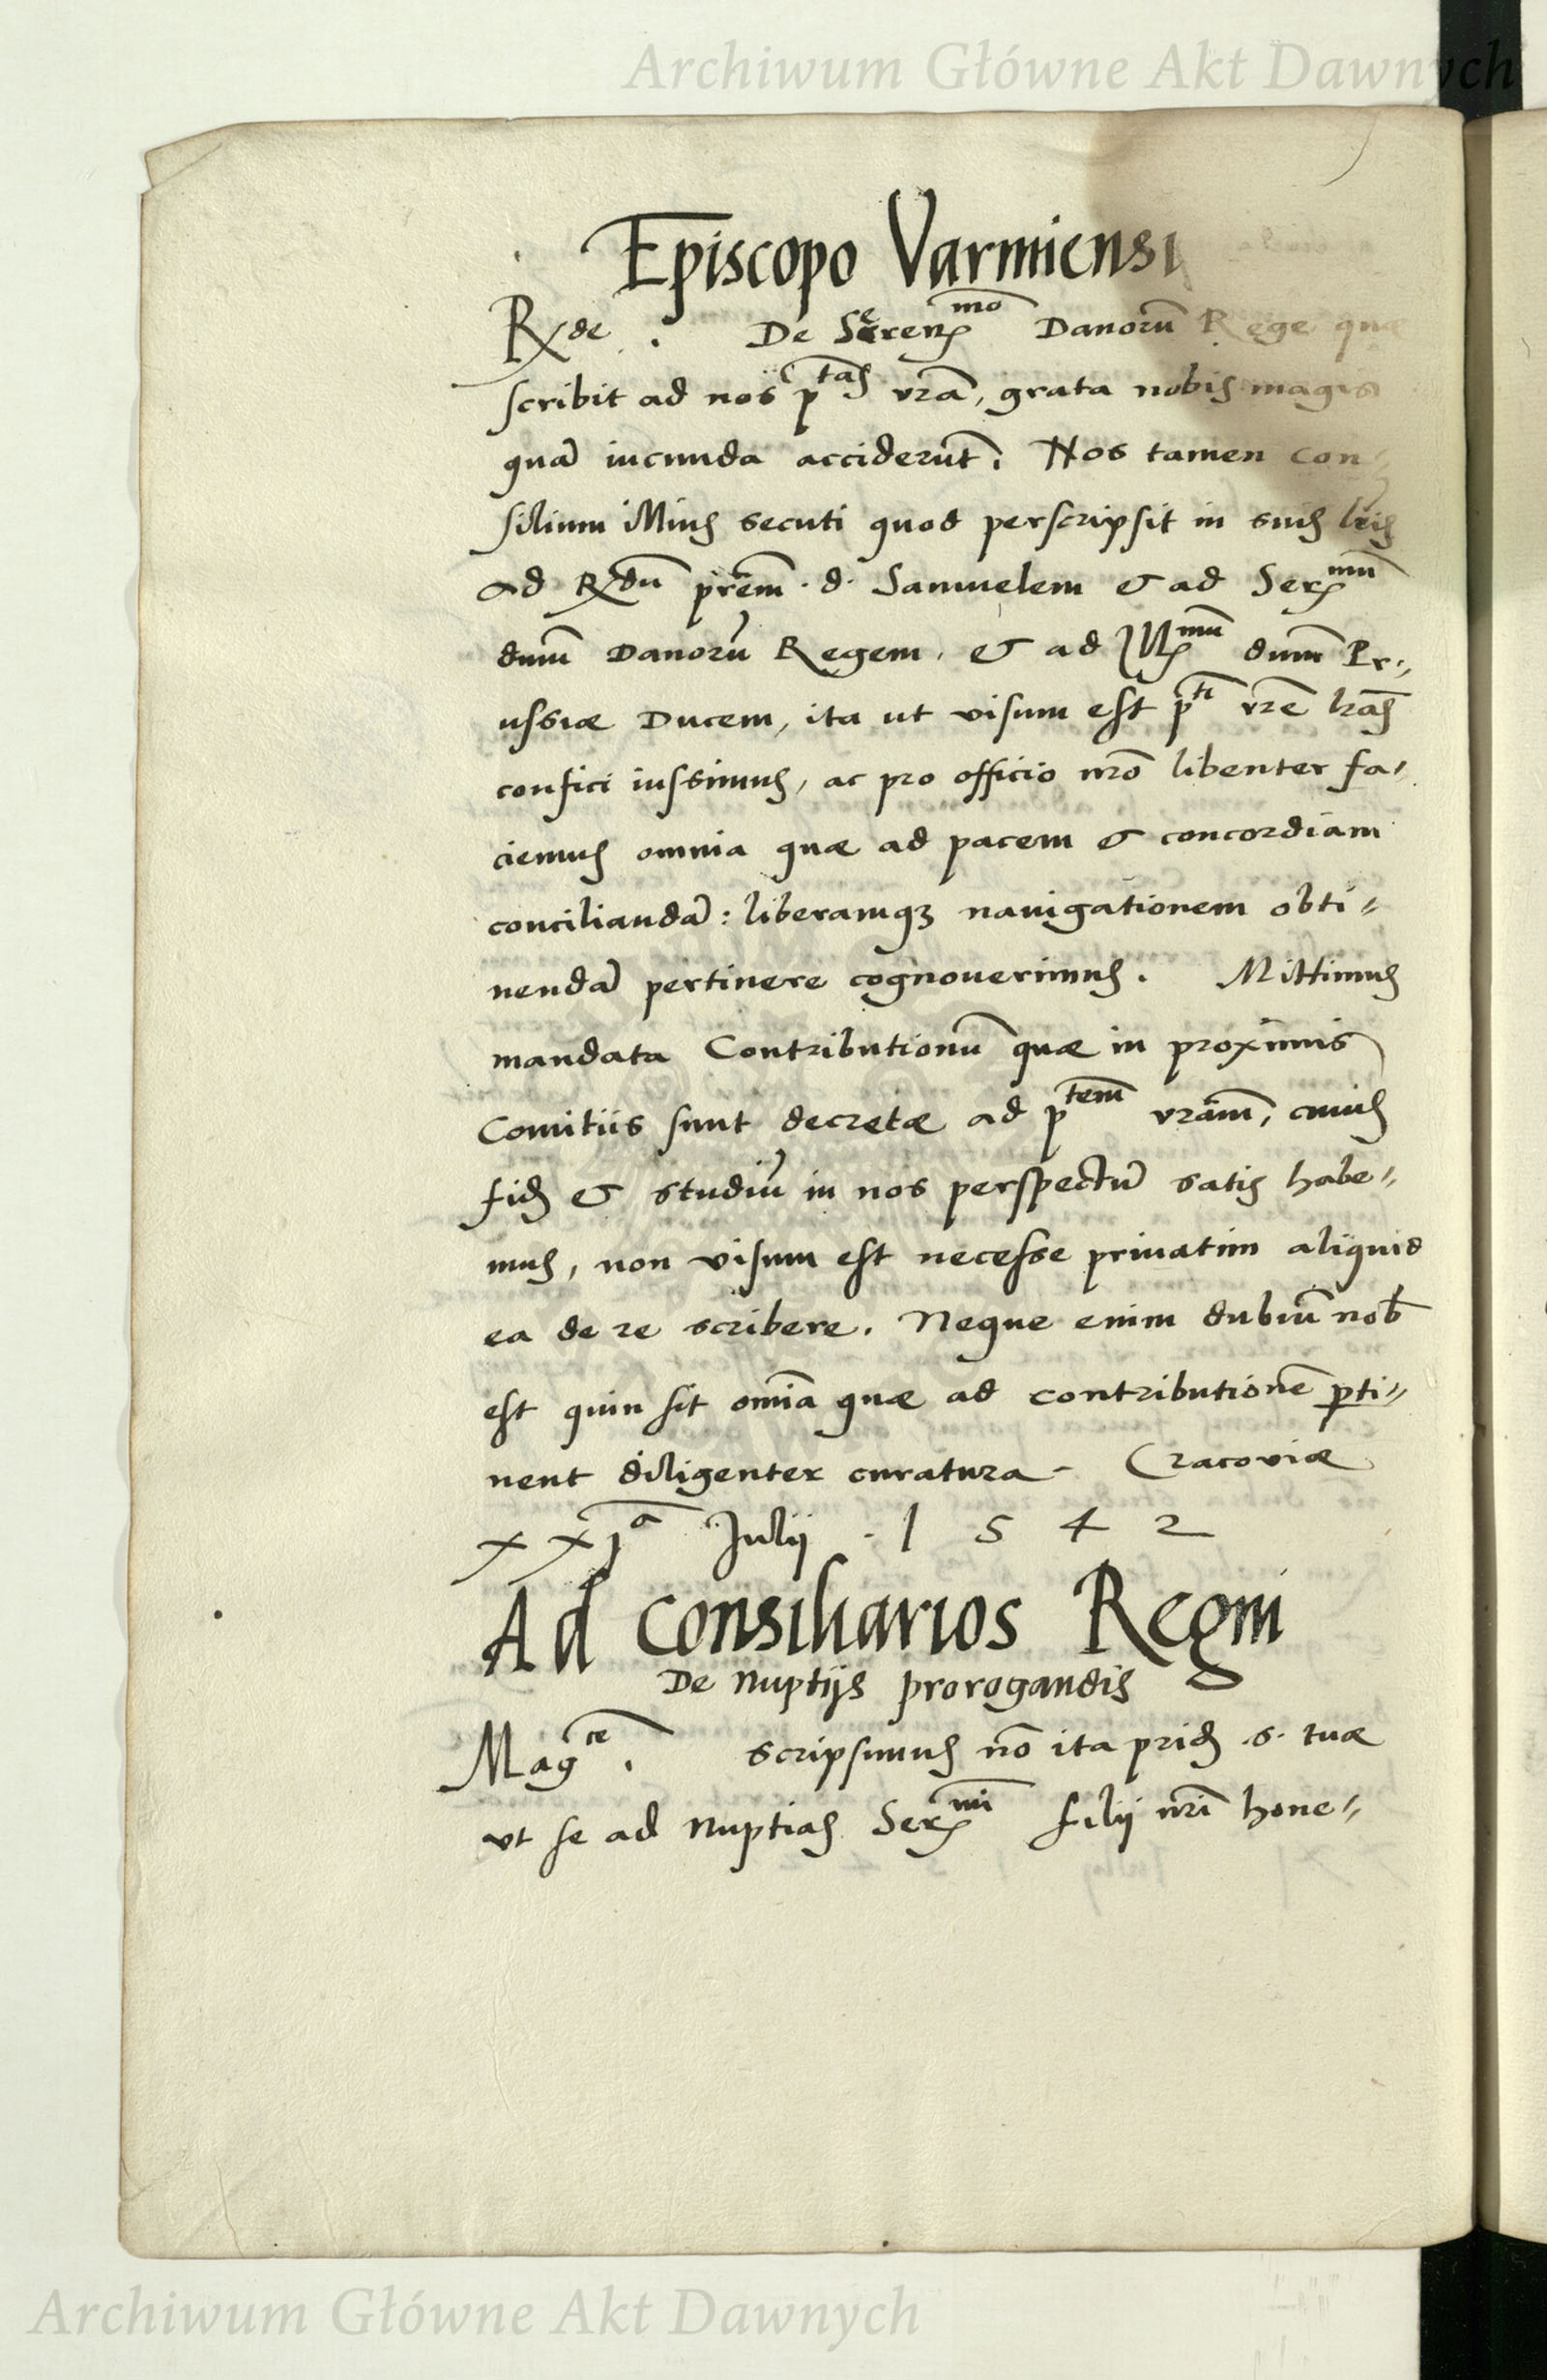 Archiwum Główne Akt Dawnych
Episcopo Varmiensi
Rde. De Serenmo Danorū Rege quae
scribit ad nos ptas vrā, grata nobis magis
quā iucunda acciderūt. Nos tamen con-
silium illius secuti quod perscripsit in suis lris
ad Rdū prem. d. Samuelem & ad Sermū
dnūm Danorū Regem, & ad Illmū dnūm Pr-
ussiae Ducem, ita ut visum est pti vrē lrās
confici iussimus, ac pro officio nrō libenter fa-
ciemus omnia quae ad pacem & concordiam
conciliandā: liberamqꝫ nauigationem obti-
nendā pertinere cognouerimus. Mittimus
mandata Contributionū quae in proximis
Comitiis sunt decretae ad ptem vrām, cuius
fidē & studiū in nos perspectū satis habe-
mus, non visum est necesse priuatim aliquid
ea de re scribere. Neque enim dubiū nob
est quin sit omīa quae ad contributionē ꝑti-
nent diligenter curatura. Cracoviae
xxja Julij . 1542
Ad Consiliarios Regni
De Nuptijs prorogandis
Magce. scripsimus nō ita pridē .s. tuae
vt se ad Nuptias Sermi filij nrī hone-
Archiwum Główne Akt Dawnych